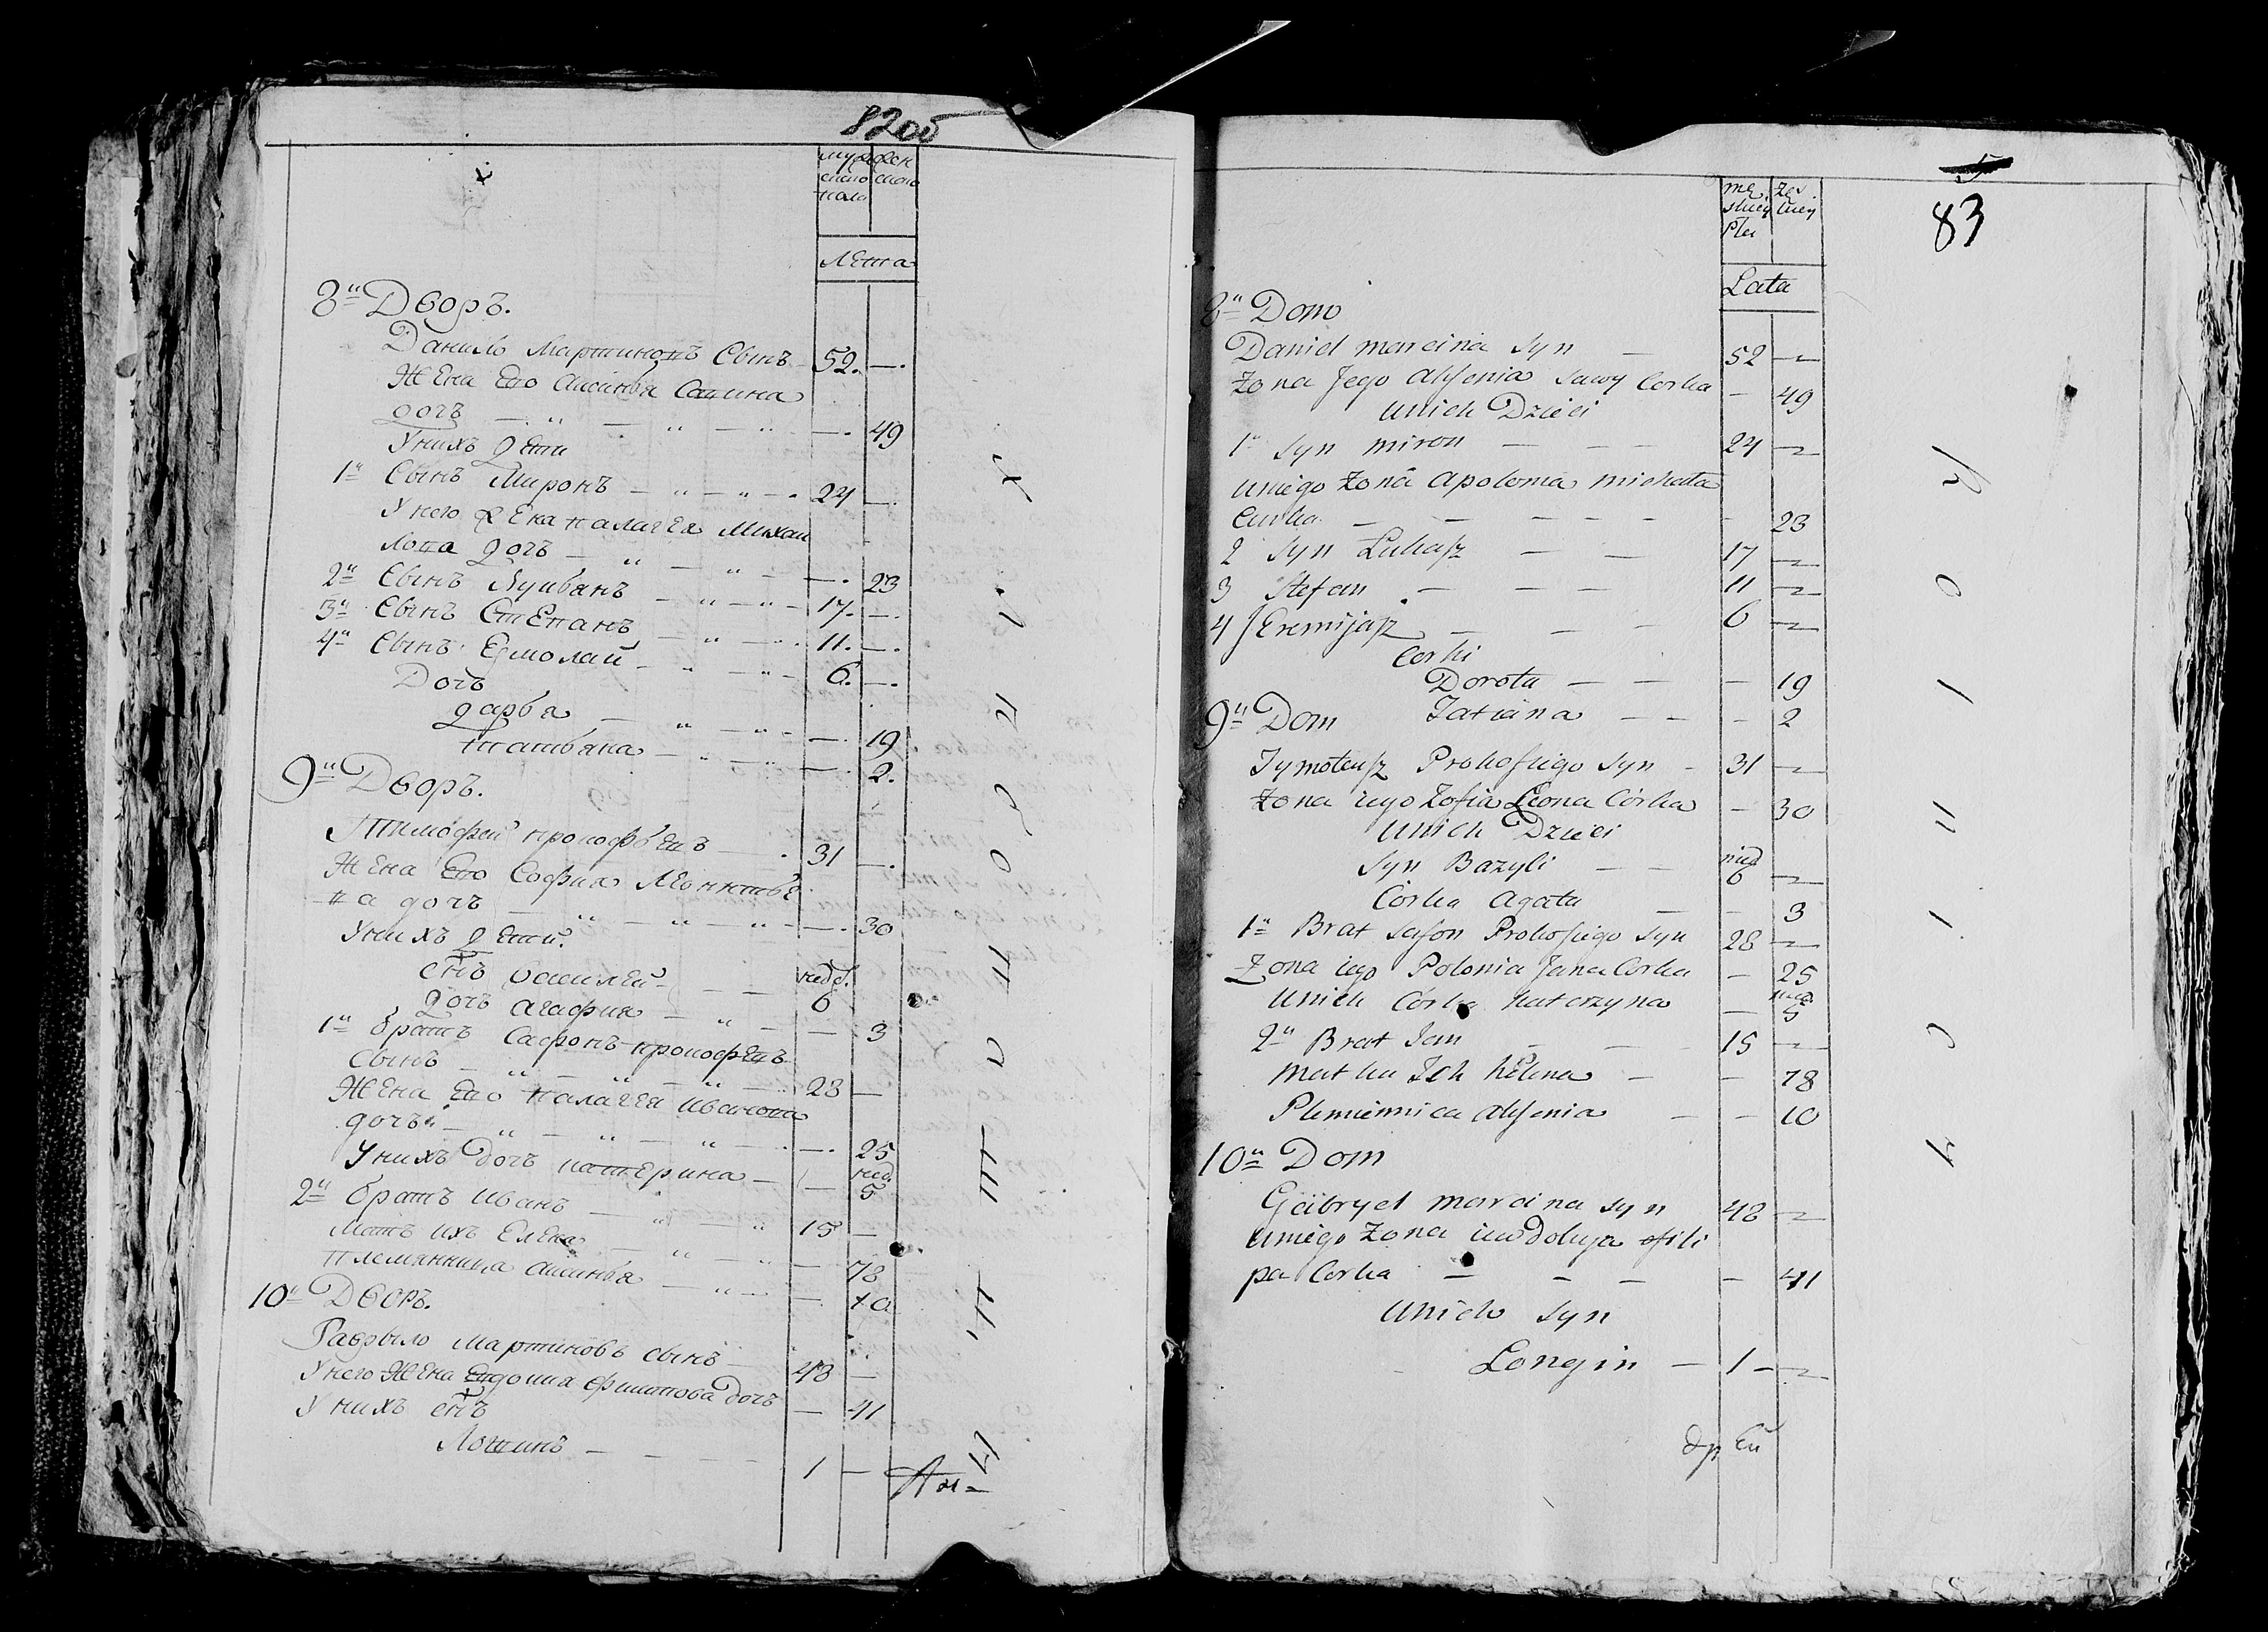 82об
мужескаго пола
женскаго
Лета
8й Дворъ.
Данило Мартиновъ Сынъ 52. —
Жена Его Аксинья Савина
дочь — — — 49
У нихъ дети
1й Сынъ Миронъ — 24 —
У него жена палагея Михаи
лова дочь — — 23
2й Сынъ Лукьянъ — 17. —
3й Сынъ Степанъ — 11. —
4й Сынъ Ермолай — 6. —
Дочь
дарья — — 19
татьяна — — 2.
9й Дворъ.
Тимофей прокофьевъ — 31 —
Жена Его София Леонтье
ва дочь — — 30
У нихъ дети.
снъ василей — нед. 6
дочь агафия — — 3
1й братъ Сафонъ прокофьевъ
Сынъ — — 28 —
Жена Его палагея Иванова
дочь — — 25
У нихъ дочь катерина — — нед. 5
2й братъ Иванъ — 15 —
Мать ихъ Елена — — 78
племянница аксинья — — 10
10й Дворъ.
Гаврыло Мартиновъ сынъ — 48 —
У него Жена Евдокия филипова дочь — 41
У нихъ снъ
Логинъ — 1 —
5
83
męskiej Płci
żeńskiey
Lata
8й Dom
Daniel marcina Syn — 52 —
Zona Jego Axenia Sawy Corka — 49
unich Dzieci
1й Syn miron — 24 —
uniego Zona apolonia michała
Curka — — 23
2 Syn Lukasz — 17 —
3 Stefan — 11 —
4 Jeremijasz — 6 —
Corki
Dorota — — 19
Tatiana — — 2
9й Dom
Tymoteusz Prokofiego Syn — 31 —
Zona iego Zofia Leona Córka — 30
unich Dzieci
Syn Bazyli — nied 6 —
Córka Agata — — 3
1й Brat Safon Prokofiego Syn 28 —
Zona iego Polonia Jana Corka — 25
unich Córka katarzyna — nied 5
2й Brat Jan — 15 —
matka Ich helena — — 78
Plemiennica Axenia — — 10
10й Dom
Gabryel marcina syn 48 —
uniego Zona iewdokija fili
pa Corka — — 41
unich Syn
Longin — 1 —